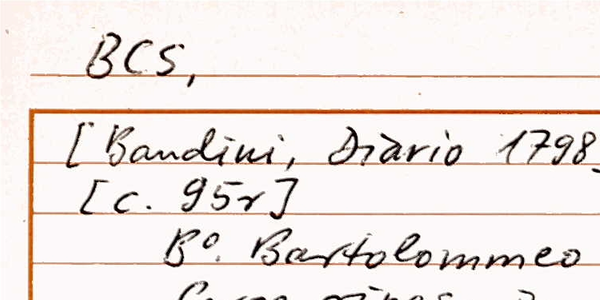 BCS,
[Bandini, Diario 1798
[c. 95r]
Bº. Bartolommeo